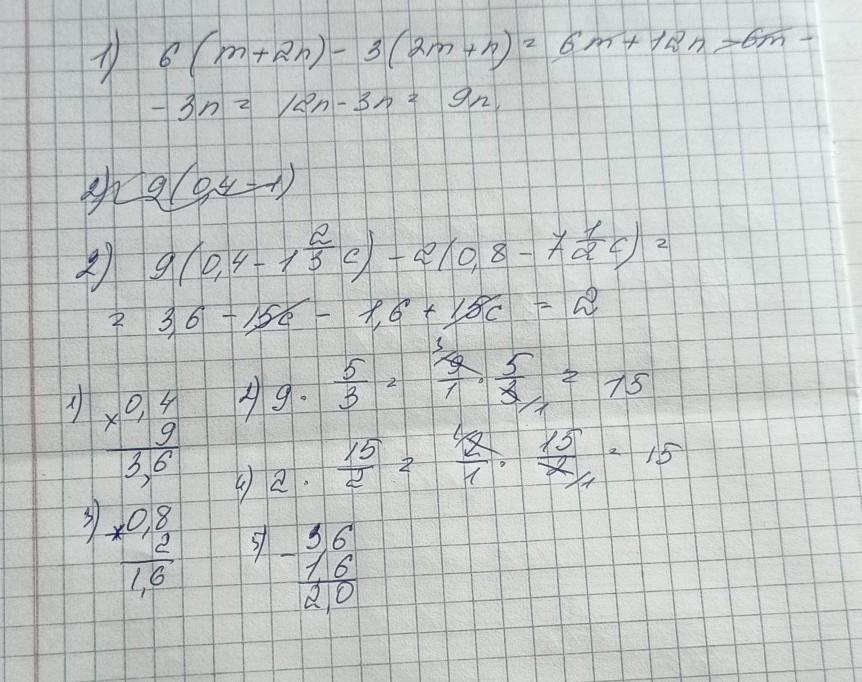 1) 6(m+2n) - 3(2m+n) = 6m + 12n - 6m -
- 3n = 12n - 3n = 9n.
2) 9(0,4-1)
2) 9(0,4 - 1 2/3 c) - 2(0,8 - 7 1/2 c) =
= 3,6 - 15c - 1,6 + 15c = 2
1) × 0,4
9
3,6
2) 9 · 5/3 = 9/1 · 5/3 = 15
3) × 0,8
2
1,6
4) 2 · 15/2 = 2/1 · 15/2 = 15
5) - 3,6
1,6
2,0